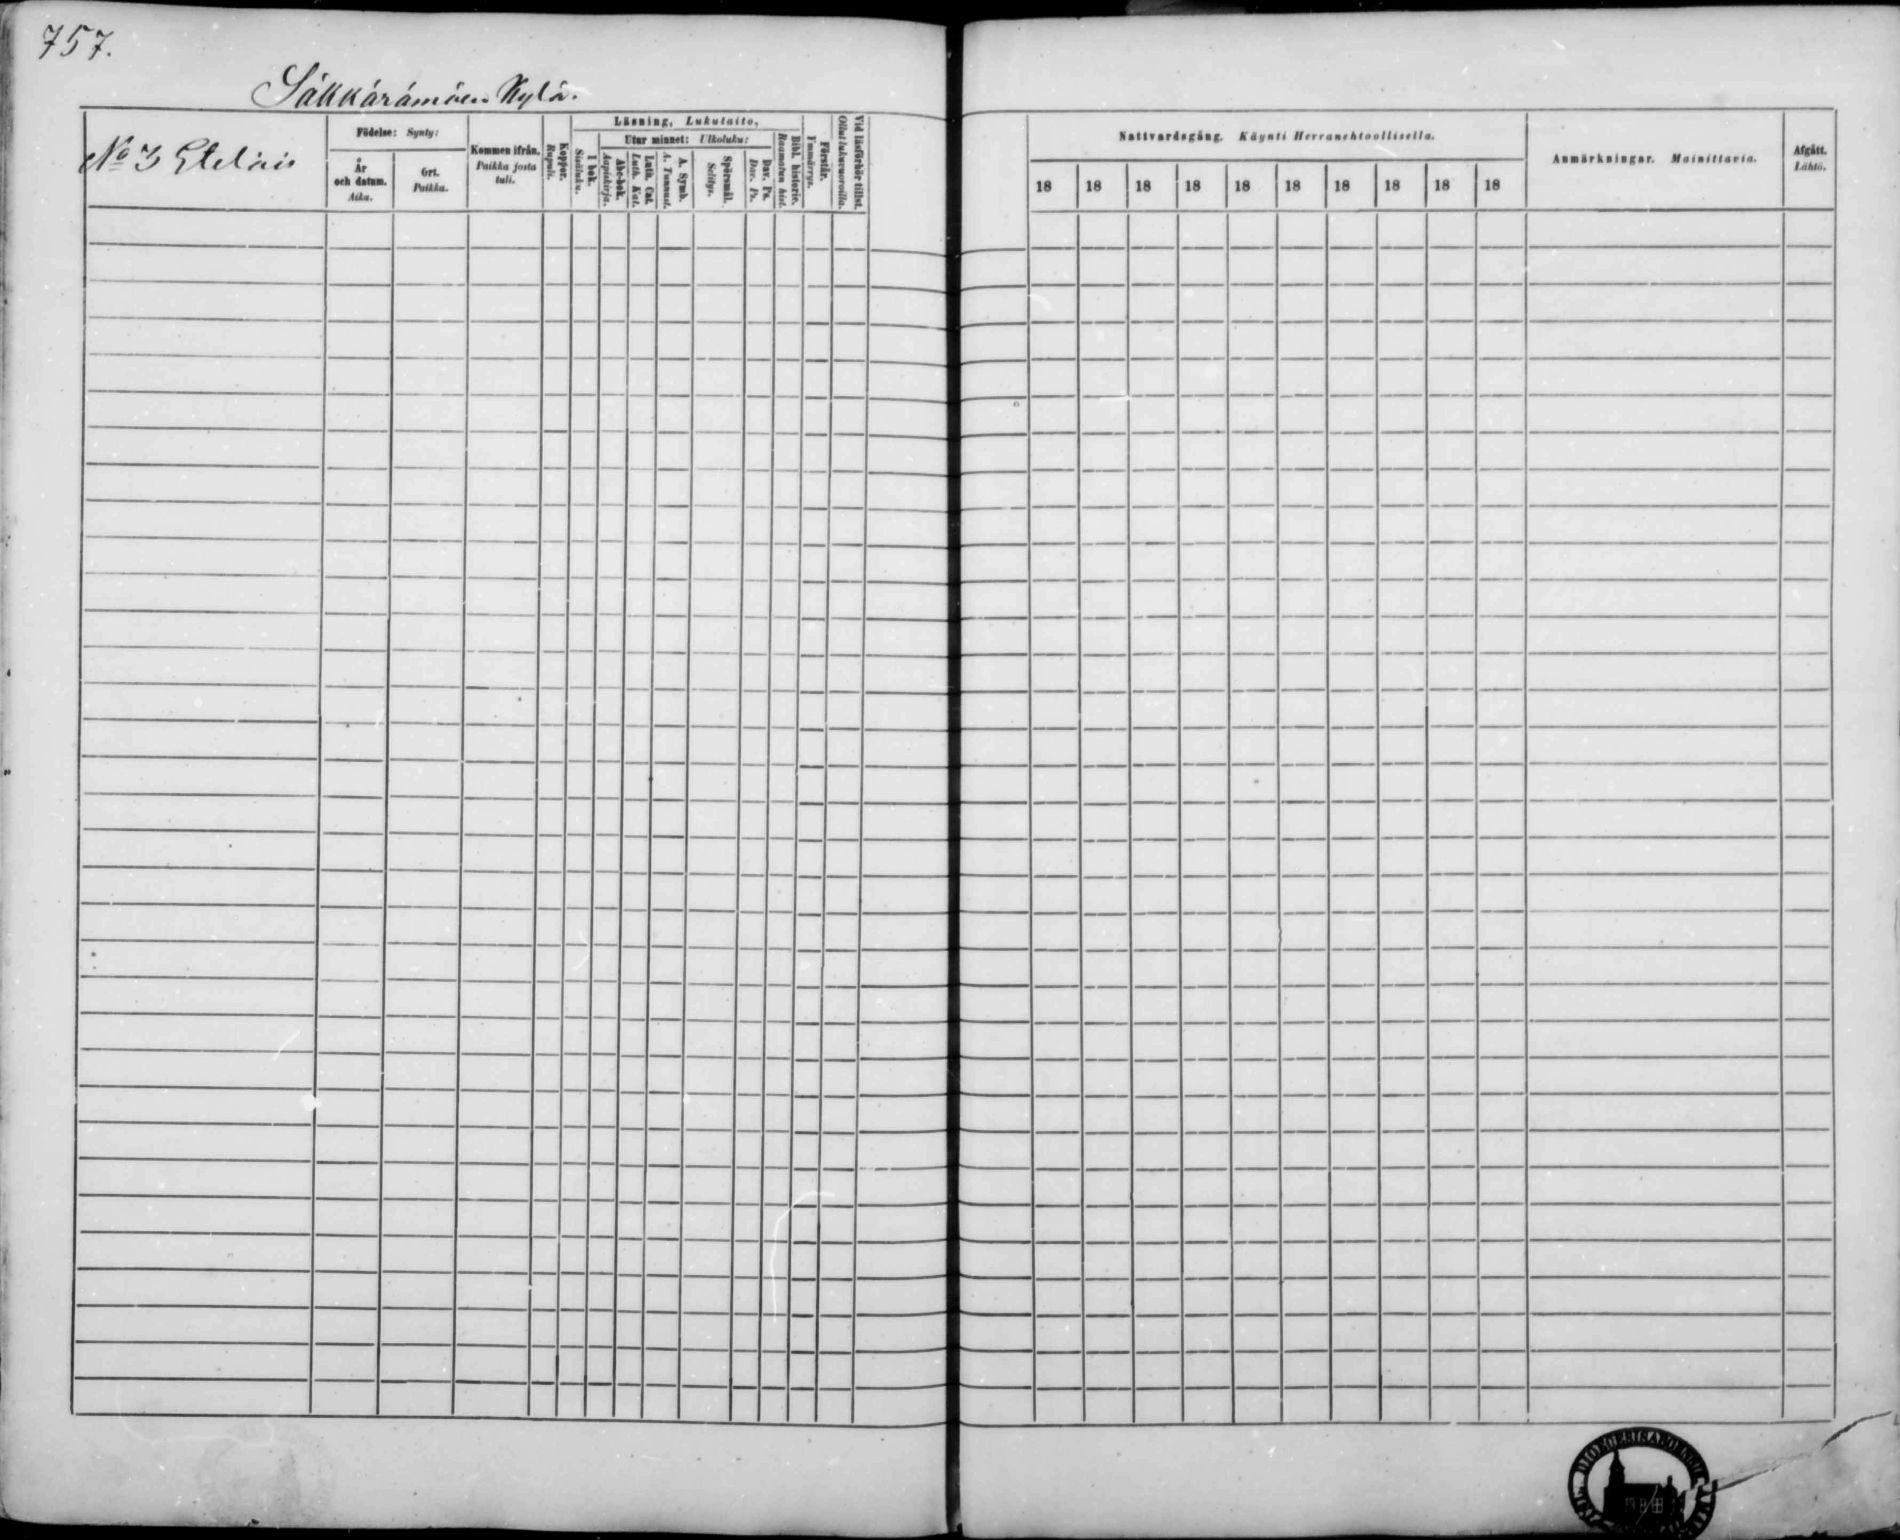 757.
Säkkärämäen Kylä.
No 3 Eteläis
Födelse: Synty:
År och datum. Aika.
Ort. Paikka.
Kommen ifrån. Paikka josta tuli.
Koppor. Rupuli.
Läsning, Lukutaito,
I bok. Sisäluku.
Utur minnet: Ulkoluku:
Abc-bok. Aapiskirja.
Luth. Cat. Luth. Kat.
A. Symb. A. Tunnust.
Spörsmål. Selitys.
Dav. Ps. Dav. Ps.
Bibl. historie. Raamatun hist.
Förstår. Ymmärrys.
Vid läsförhör tillst. Ollut lukuvuoroilla.
Nattvardsgång. Käynti Herranehtoollisella.
18 18 18 18 18 18 18 18 18 18
Anmärkningar. Mainittavia.
Afgått. Lähtö.